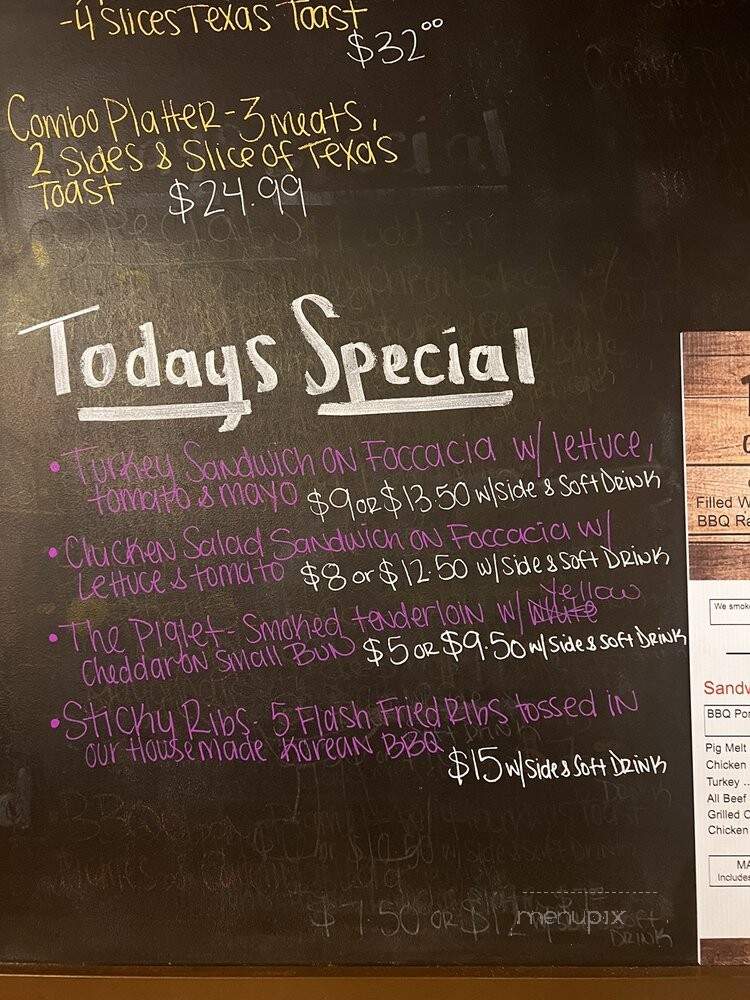 -4 Slices Texas Toast
$32.00
Combo Platter - 3 meats,
2 Sides & Slice of Texas
Toast $24.99
Todays Special
• Turkey Sandwich on Foccacia w/ lettuce,
tomato & mayo $9 or $13.50 w/Side & Soft Drink
• Chicken Salad Sandwich on Foccacia w/
Lettuce & tomato $8 or $12.50 w/Side & Soft Drink
Yellow
• The Piglet - Smoked tenderloin w/ white
Cheddar on Small Bun $5 or $9.50 w/Side & Soft Drink
• Sticky Ribs - 5 Flash Fried Ribs tossed in
our Housemade Korean BBQ
$15 w/Side & Soft Drink
$7.50 or
Drink
menupix
Filled W
BBQ Ra
We smok
Sandw
BBQ Por
Pig Melt
Chicken
Turkey ..
All Beef
Grilled C
Chicken
MA
Includes